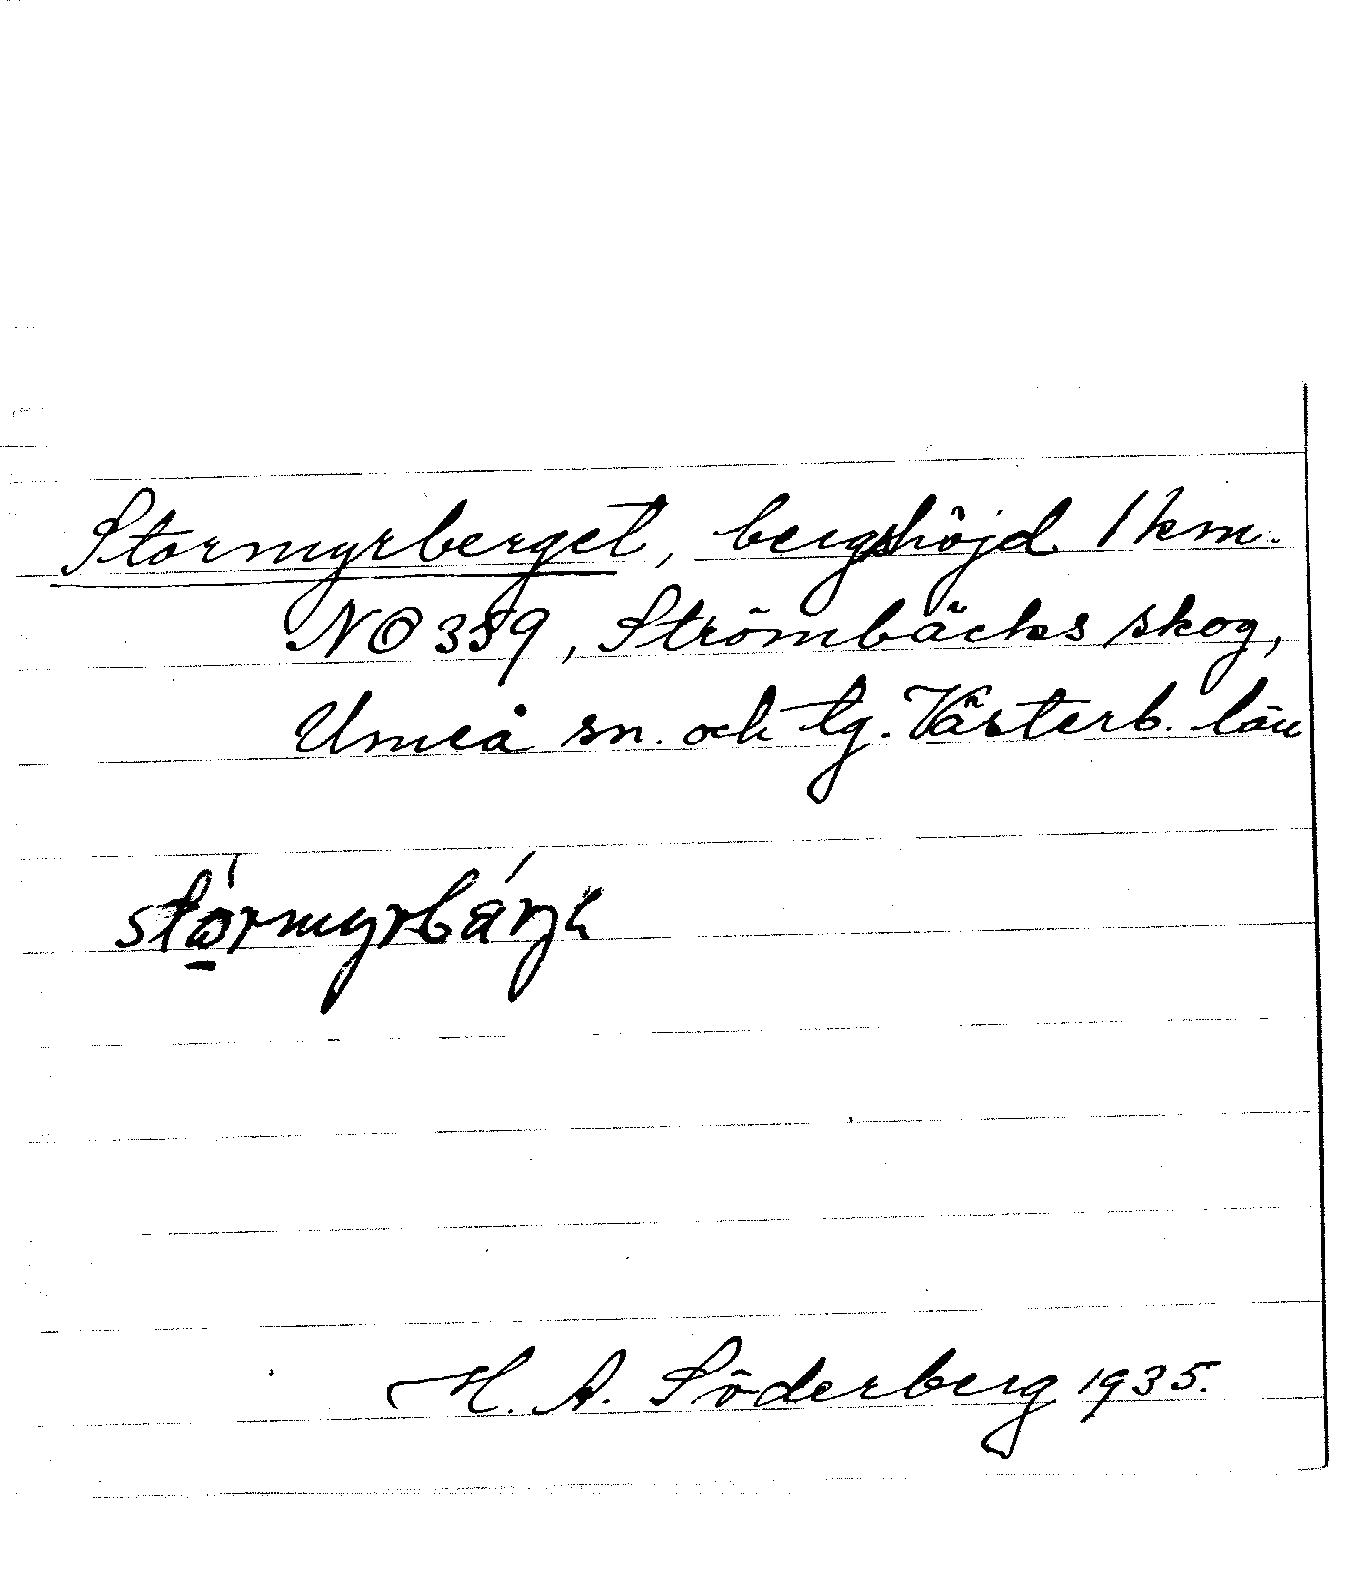 Stormyrberget, bergshöjd 1 km.
NO 359, Strömbäcks skog,
Umeå sn. och tg. Västerb. län
H. A. Söderberg 1935.